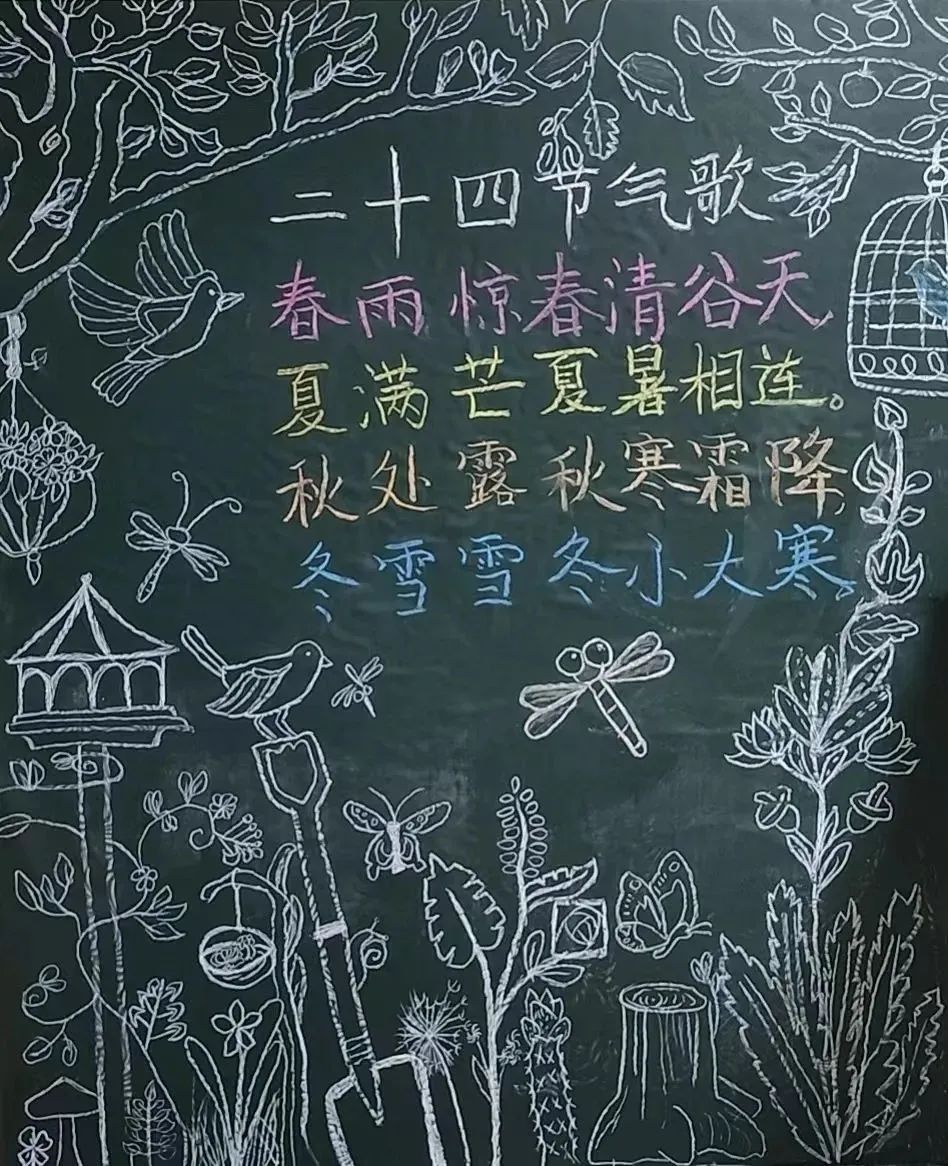 二十四节气歌
春雨惊春清谷天,
夏满芒夏暑相连。
秋处露秋寒霜降,
冬雪雪冬小大寒。